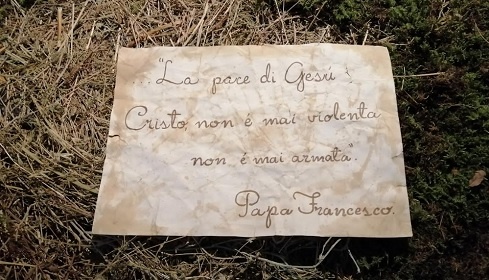 ..."La pace di Gesú
Cristo, non é mai violenta
non é mai armata".
Papa Francesco.